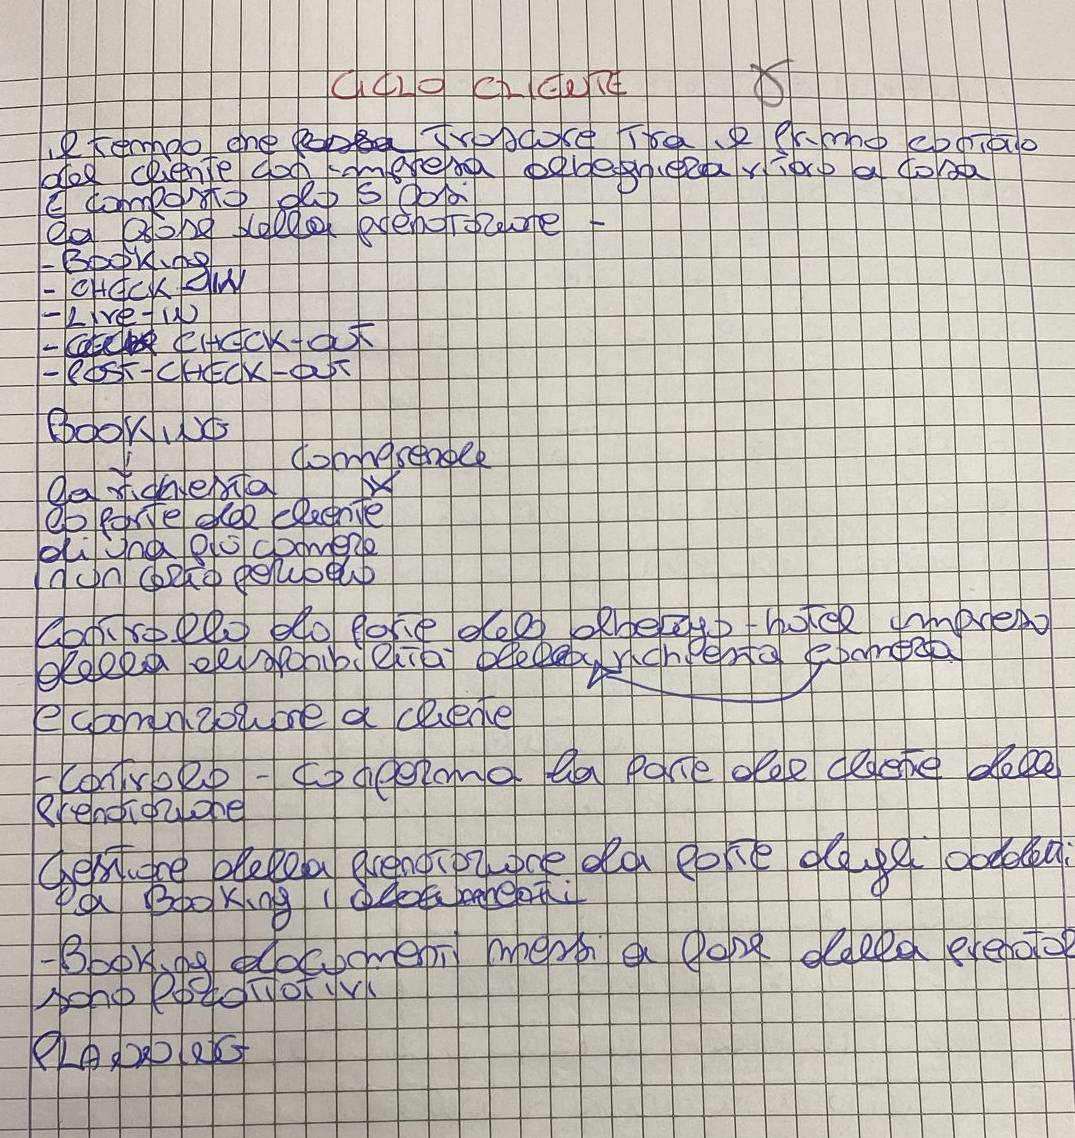 CICLO CLIENTE
il tempo che trascore tra il primo contato
del cliente con impresa albeghiera ritorno a casa
È composto da 5 fasi
la fase della prenotazione -
- Booking
- CHECK IN
- Live-in
- CHECK-OUT
- POST-CHECK-OUT
BOOKING
comprende
la richiesta
da parte del cliente
di una più camere
in un certo periodo
Controllo da parte del albergo-hotel impresa
della disponibilità della richiesta camera
e comunicazione a cliente
- controllo - conferma da parte del cliente della
prenotazione
Gestione della prenotazione da parte degli addetti
a Booking i documenti
- Booking documenti messi a fase della
sono
PLANNING